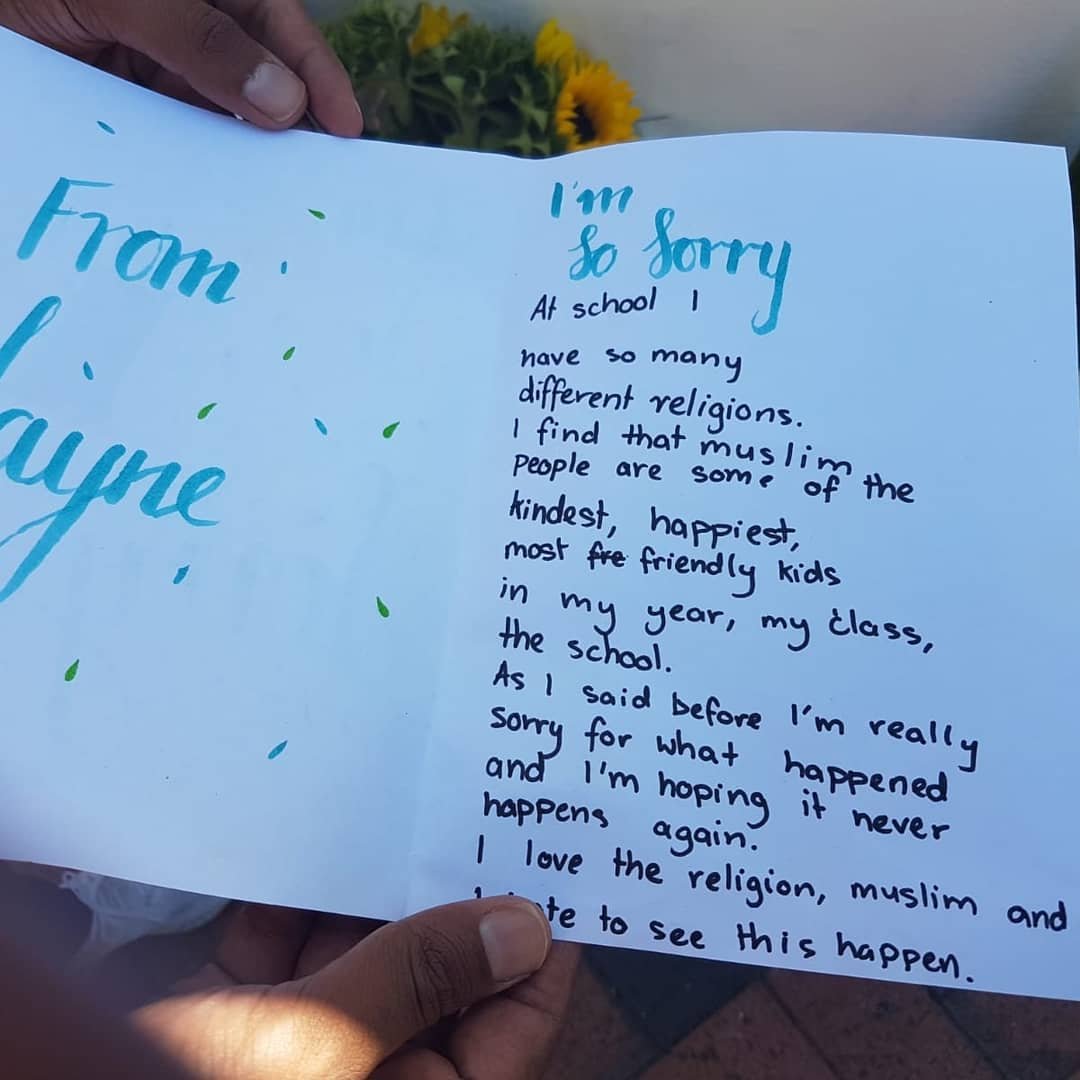 From
I'm
So Sorry
At school I
have so many
different religions.
I find that muslim
people are some of the
kindest, happiest,
most fre friendly kids
in my year, my class,
the school.
As I said before I'm really
sorry for what happened
and I'm hoping it never
happens again.
I love the religion, muslim and
to see this happen.